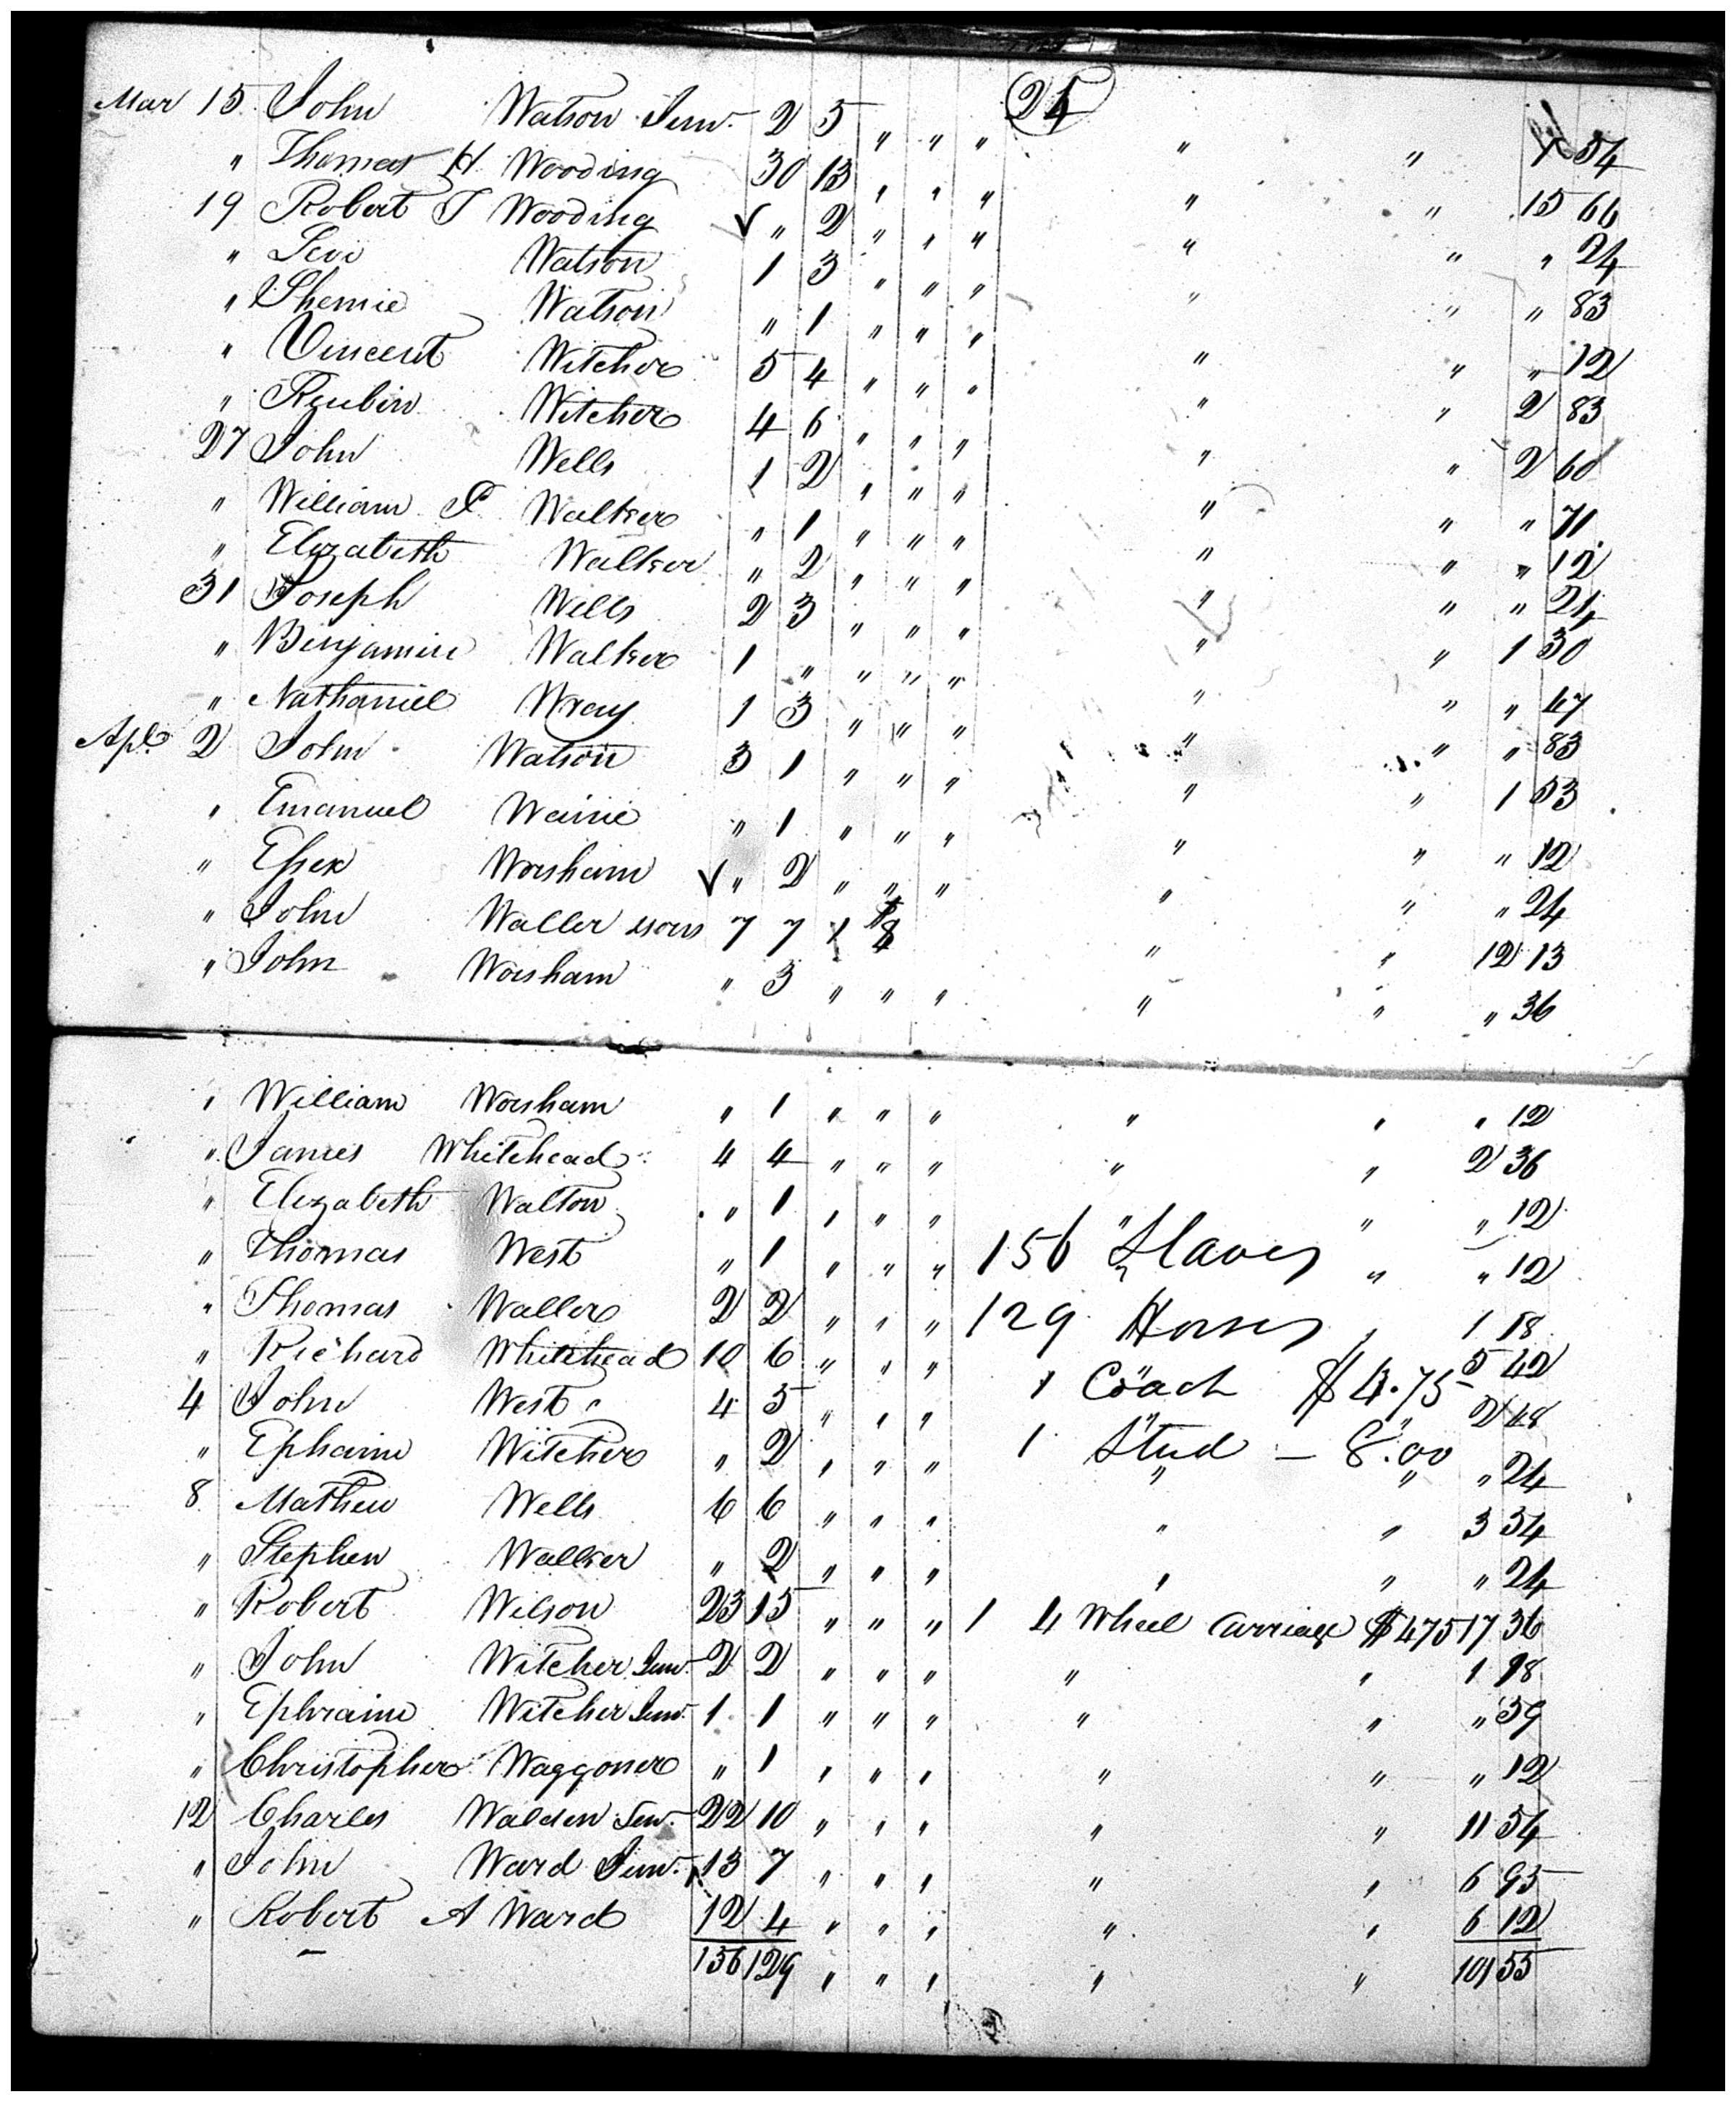 24
Mar 15 John Watson Junr. 2 5 " " " " " 1 54
" Thomas H Wooding 30 13 " " " " " 15 66
19 Robert T Wooding √ " 2 " " " " " " 24
" Levi Watson 1 3 " " " " " " 83
" Shemie Watson " 1 " " " " " " 12
" Vincent Witcher 5 4 " " " " " 2 83
" Reubin Witcher 4 6 " " " " " 2 60
27 John Wells 1 2 " " " " " " 71
" William P Walker " 1 " " " " " " 12
" Elizabeth Walker " 2 " " " " " " 24
31 Joseph Wells 2 3 " " " " " 1 30
" Benjamin Walker 1 " " " " " " " 47
" Nathaniel Wray 1 3 " " " " " " 83
Apl. 2 John Watson 3 1 " " " " " 1 53
" Emanuel Wainie " 1 " " " " " " 12
" Essex Worsham √ " 2 " " " " " " 24
" John Waller sons 7 7 1 $8 " " 12 13
" John Worsham " 3 " " " " " " 36
" William Worsham " 1 " " " " " " 12
" James Whitehead 4 4 " " " " " 2 36
" Elizabeth Walton " 1 " " " " " " 12
" Thomas West " 1 " " " 156 Slaves " " 12
" Thomas Waller 2 2 " " " 129 Horses " 1 18
" Richard Whitehead 10 6 " " " 1 Coach $4.75 5 42
4 John West 4 5 " " " " " 2 48
" Ephaim Witcher " 2 " " " 1 Stud — 8.00 " " 24
8 Mathew Wells 6 6 " " " " " 3 54
" Stephen Walker " 2 " " " " " " 24
" Robert Wilson 23 15 " " " 1 4 Wheel Carriage $475 17 36
" John Witcher Junr. 2 2 " " " " " 1 18
" Ephraim Witcher Junr. 1 1 " " " " " " 59
" Christopher Waggoner " 1 " " " " " " 12
12 Charles Walden Senr. 22 10 " " " " " 11 54
" John Ward Junr. 13 7 " " " " " 6 95
" Robert A Ward 12 4 " " " " " 6 12
156 129 " " " " " 101 55